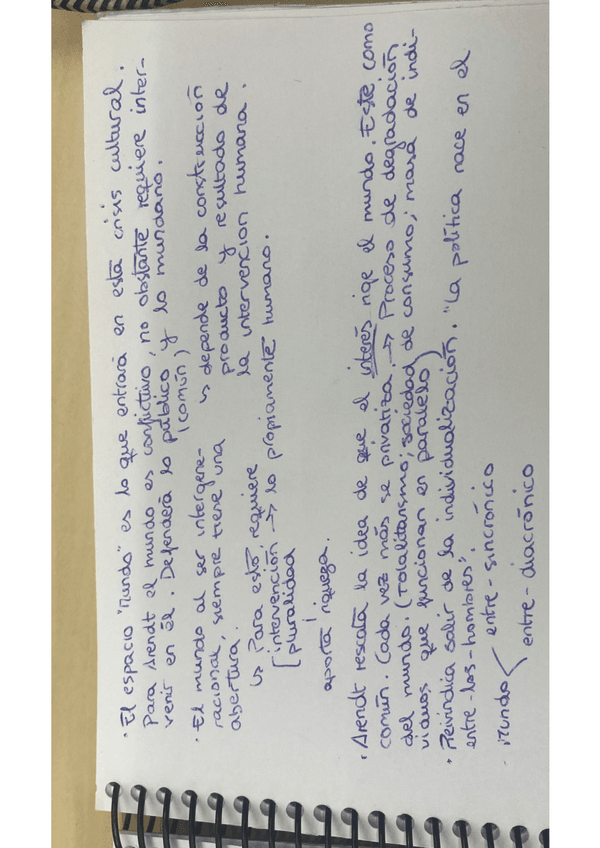 · El espacio "Mundo" es lo que entrará en esta crisis cultural.
Para Arendt el mundo es conflictivo, no obstante requiere inter-
venir en él. Defenderá lo público y lo mundano.
(común)
· El mundo al ser intergene-
racional, siempre tiene una
abertura.
↳ depende de la construcción
producto y resultado de
la intervención humana.
↳ Para esto requiere
[intervención → lo propiamente humano.
[pluralidad
aporta riqueza.
· Arendt rescata la idea de que el interés rige el mundo. Este como
común. Cada vez más se privatiza. → Proceso de degradación
del mundo. (Totalitarismo; sociedad de consumo; masa de indi-
viduos que funcionan en paralelo)
· Reivindica salir de la individualización. "La política nace en el
entre-los-hombres".
Mundo < entre-sincrónico
entre-diacrónico